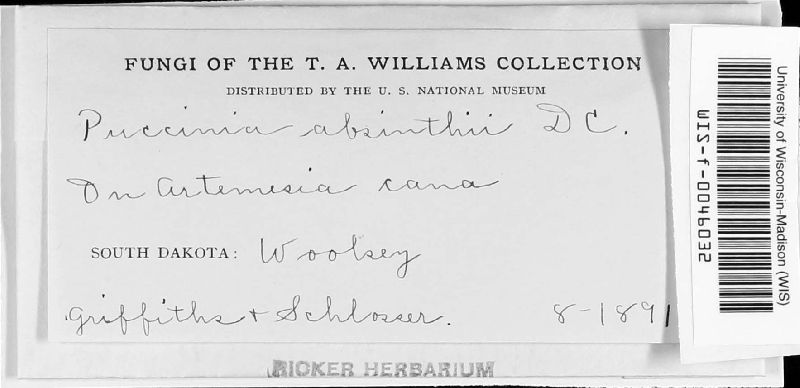 FUNGI OF THE T. A. WILLIAMS COLLECTION
DISTRIBUTED BY THE U. S. NATIONAL MUSEUM
Puccinia absinthii DC.
On Artemesia cana
SOUTH DAKOTA: Woolsey
Griffiths + Schlosser. 8-1891
RICKER HERBARIUM
University of Wisconsin-Madison (WIS)
WIS-f-0046032